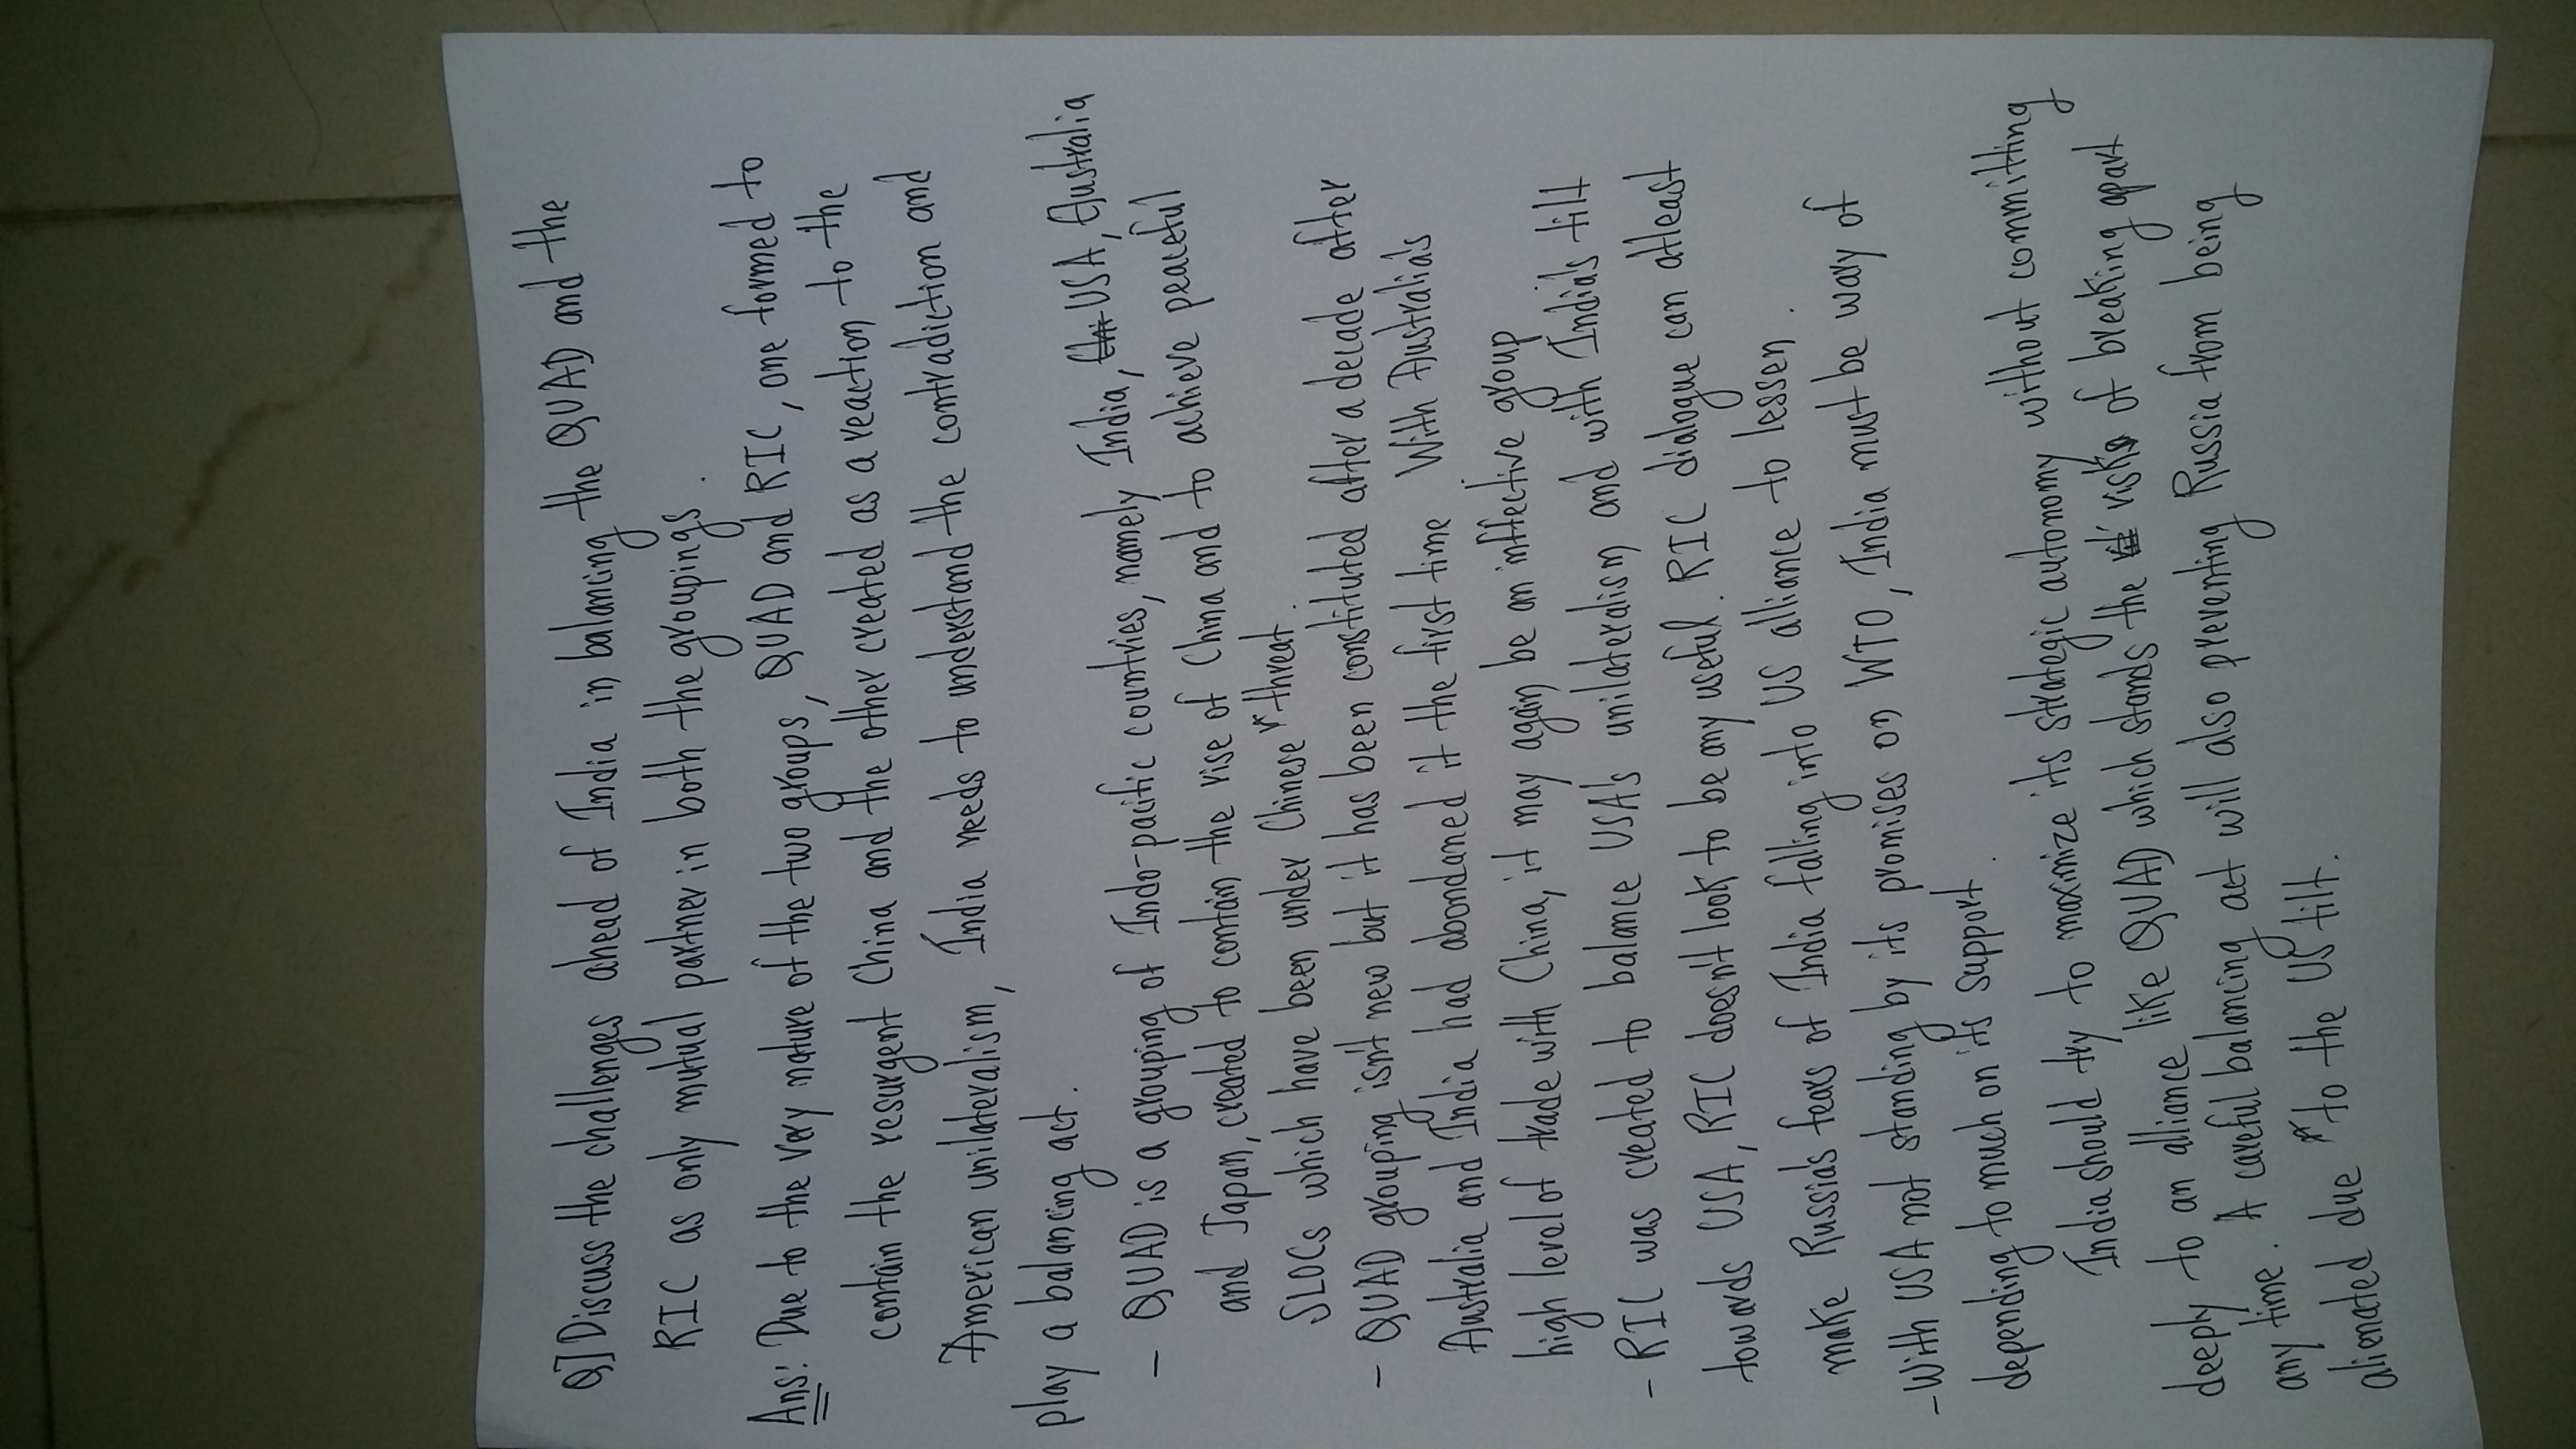 Q] Discuss the challenges ahead of India in balancing the QUAD and the
RIC as only mutual partner in both the groupings.
Ans: Due to the very nature of the two groups, QUAD and RIC, one formed to
contain the resurgent China and the other created as a reaction to the
American unilateralism, India needs to understand the contradiction and
play a balancing act.
- QUAD is a grouping of Indo-pacific countries, namely India, USA, Australia
and Japan, created to contain the rise of China and to achieve peaceful
SLOCs which have been under Chinese threat.
- QUAD grouping isn't new but it has been constituted after a decade after
Australia and India had abondaned it the first time With Australia's
high level of trade with China, it may again be an inffective group
- RIC was created to balance USA's unilateralism and with India's tilt
towards USA, RIC doesn't look to be any useful. RIC dialogue can atleast
make Russia's fears of India falling into US alliance to lessen.
- With USA not standing by its promises on WTO, India must be wary of
depending to much on its support.
India should try to maximize its strategic autonomy without committing
deeply to an alliance like QUAD which stands the risk of breaking apart
any time. A careful balancing act will also preventing Russia from being
alienated due to the US tilt.